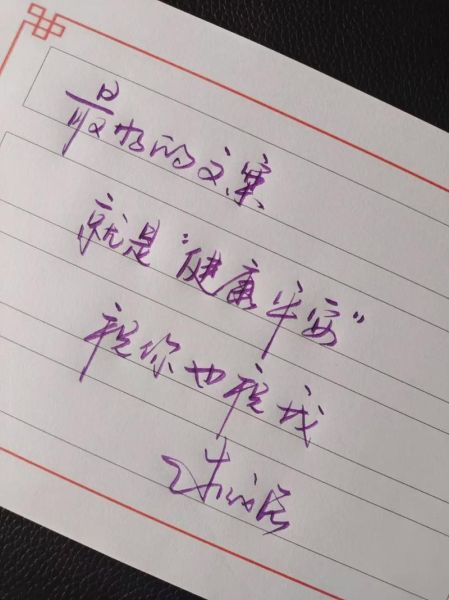 最好的文案
就是“健康平安”
祝你也祝我